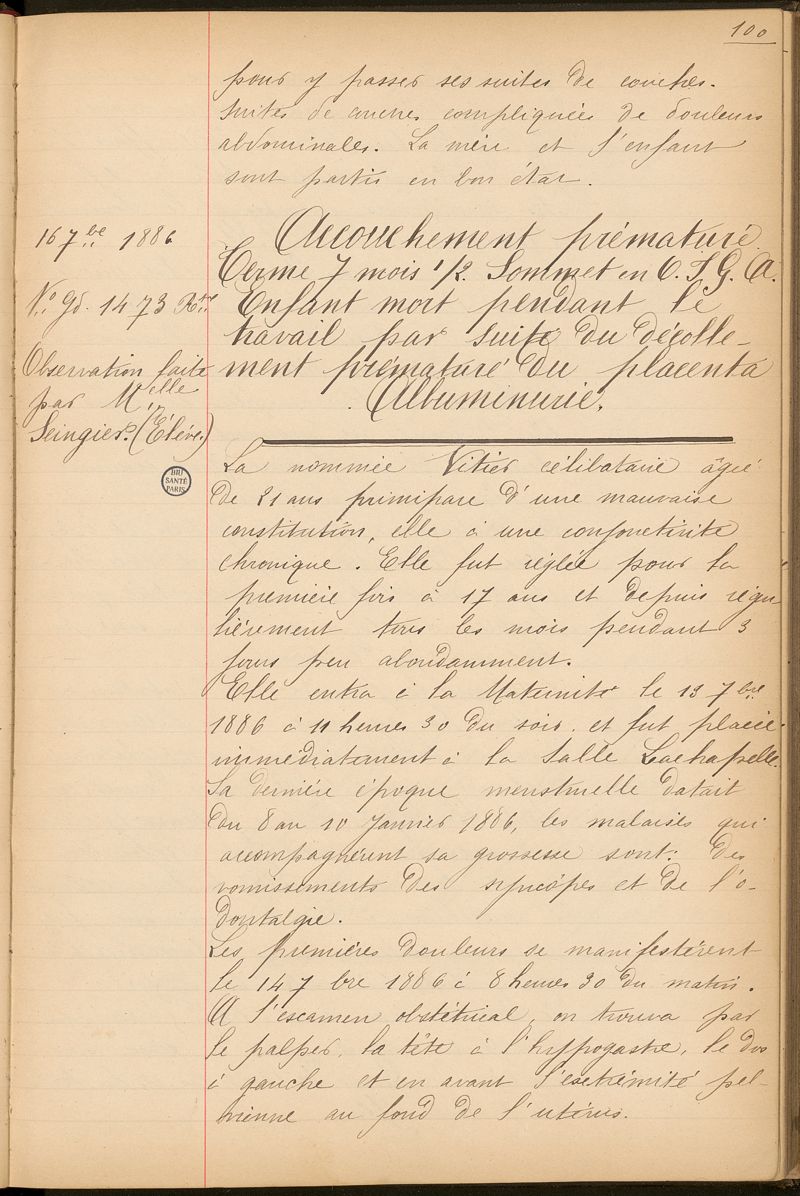 100
pour y passer ses suites de couches.
Suites de couches compliquées de douleurs
abdominales. La mère et l'enfant
sont partis en bon état.
16 7bre 1886
No Gd. 1473 Rtre
Observation faite
par Melle
Seingier. (Élève.)
BIU
SANTÉ
PARIS
Accouchement prématuré.
Terme 7 mois 1/2. Sommet en O.I.G.A.
Enfant mort pendant le
travail par suite du décolle-
ment prématuré du placenta
Albuminurie.
La nommée Vitier célibataire âgée
de 21 ans primipare d'une mauvaise
constitution, elle à une conjonctivite
chronique. Elle fut réglée pour la
première fois à 17 ans et depuis régu
lièrement tous les mois pendant 3
jours peu abondamment.
Elle entra à la Maternité le 13 7bre
1886 à 11 heures 30 du soir. et fut placée
immédiatement à la Salle Lachapelle.
Sa dernière époque menstruelle datait
du 8 au 10 Janvier 1886, les malaises qui
accompagnèrent sa grossesse sont: des
vomissements des syncopes et de l'o-
dontalgie.
Les premières douleurs se manifestèrent
le 14 7bre 1886 à 8 heures 30 du matin.
A l'examen obstétrical, on trouva par
le palper, la tête à l'hypogastre, le dos
à gauche et en avant l'extrémité pel-
vienne au fond de l'utérus.